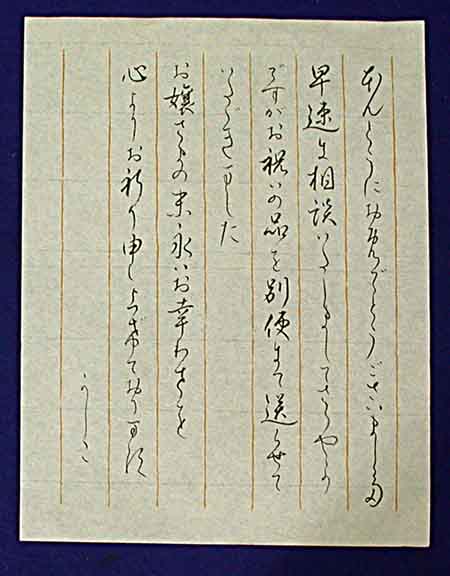 ほんとうにおめでとうございました
早速に相談いたしましてささやか
ですがお祝いの品を別便にて送らせて
いただきました
お嬢さまの末永いお幸わせを
心よりお祈り申し上げております
かしこ